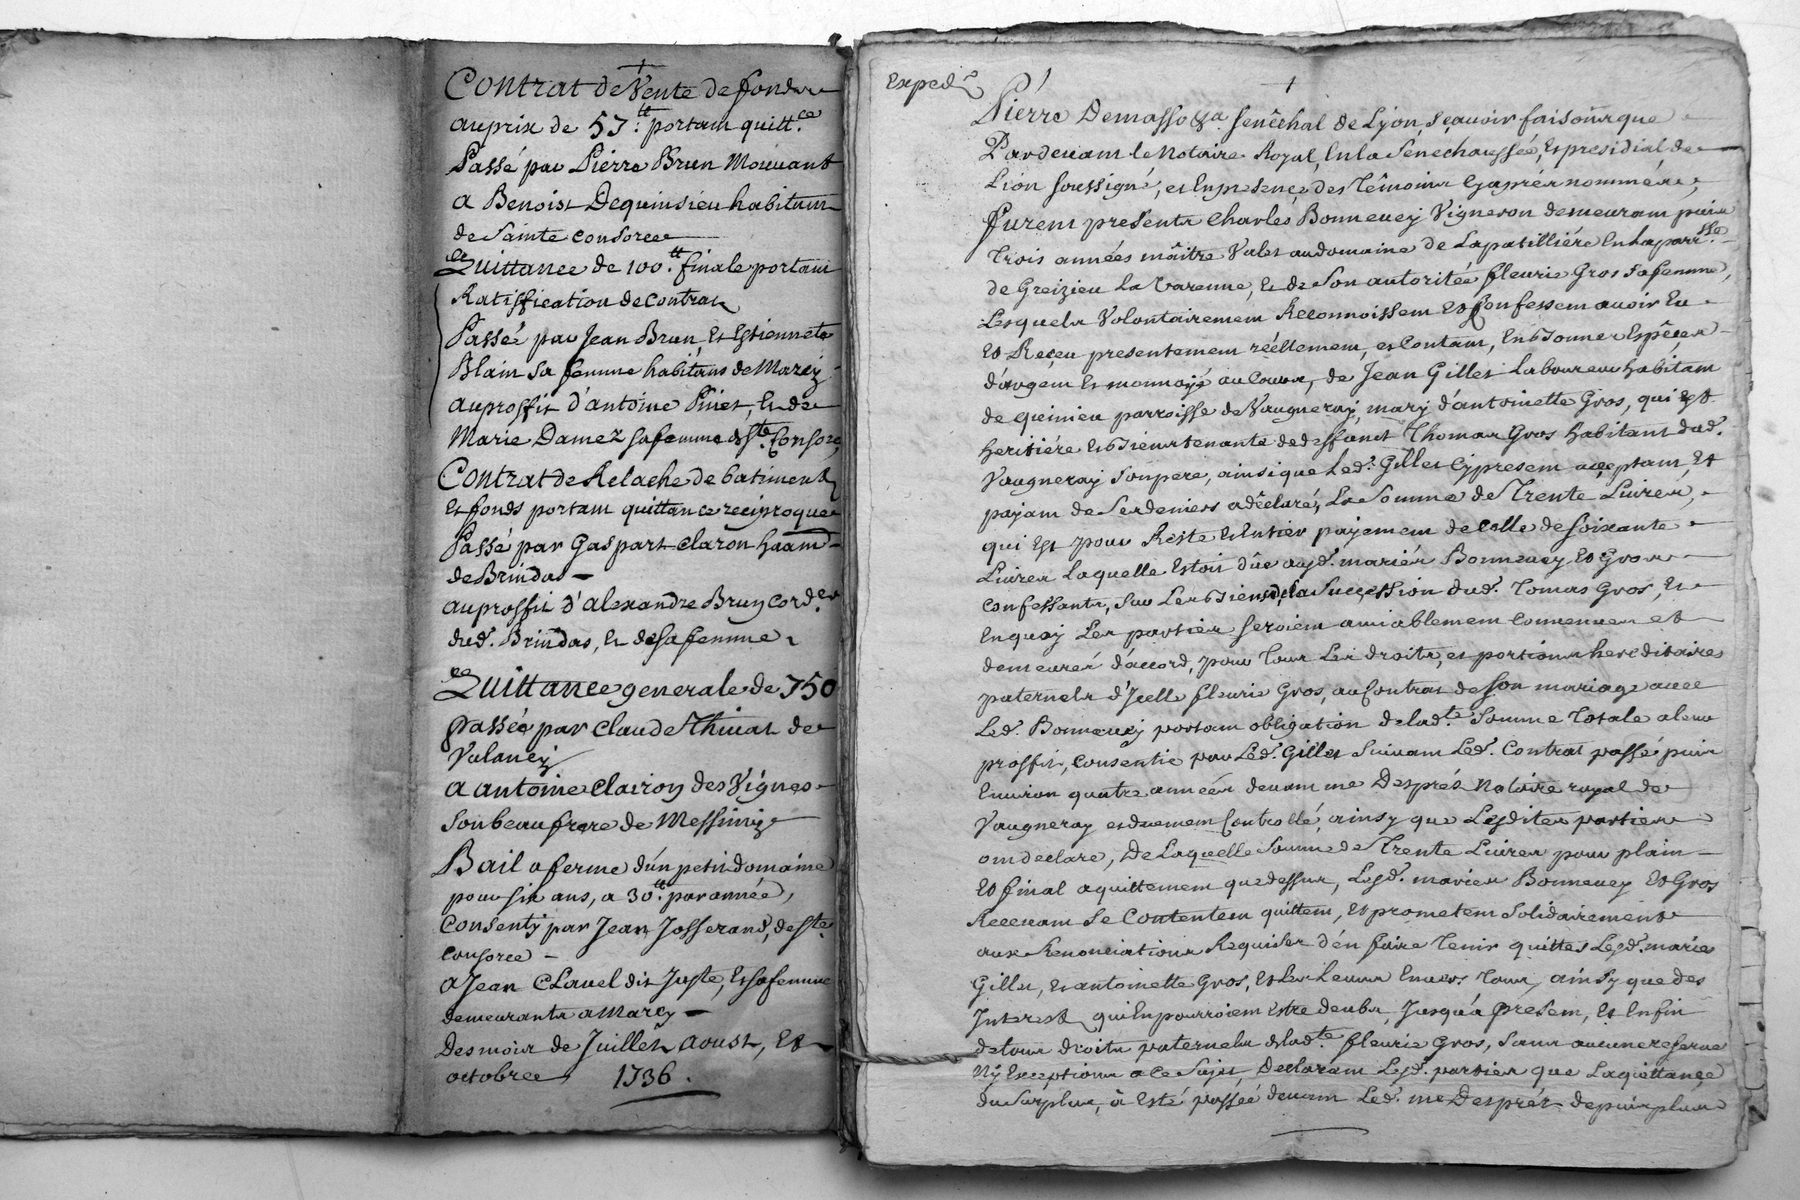 Contrat de Vente de fonds
au prix de 57.tt portant quitt.ce
Passé par Pierre Brun Mouvant
a Benoist Dequinsieu habitant
de Sainte Consorce
Quittance de 100.tt finale portant
Ratiffication de contrat
Passée par Jean Brun, et Estiennete
Blain sa femme habitans de Marcy
au proffit d'antoine Pinet, et de
Marie Damez sa femme de Ste. Consorce
Contrat de Relache de batiments
et fonds portant quittance reciproque
Passé par Gaspart Claron
de Brindas
au proffit d'alexandre Brun Cord.er
dud. Brindas, et de sa femme
Quittance generale de 750
passée par Claude Thivat de
a antoine Clairon des Vignes
son beau frere de Messimy
Bail a ferme d'un petit domaine
pour six ans, a 30.tt par année,
Consenty par Jean Josserand, de Ste.
Consorce
a Jean Clavel dit Juste, et sa femme
demeurants a Marcy
Des mois de Juillet, Aoust, et
octobre 1736.
Exped.é
Pierre Demasso &a. Senêchal de Lyon, sçavoir faisons que
Pardevant le Notaire Royal, en la Senechaussée, et presidial de
Lion soussigné, et en presence des Têmoins cy aprés nommés,
Furent presents Charles Bonnevey Vigneron demeurant puis
Trois années maître Valet au domaine de Lapatilliére en la parr.sse
de Greizieu La Varenne, et de son autoritée fleurie Gros sa femme,
Lesquels Volontairement Reconnoissent et Confessent avoir Eu
et Reçeu presentement réellement, et contant, en bonnes Espêces
d'argent et monnoye au Cours, de Jean Gillet Laboureur habitant
de quinieu parroisse de Vaugneray, mary d'antoinette Gros, qui est
heritiére et biens tenante de deffunct Thomas Gros habitant dud.
Vaugneray son pere, ainsi que Led. Gillet cy present acceptant, et
payant de ses deniers a dêclaré, La Somme de Trente Livres,
qui Est pour Reste et Entier payement de celle de soixante
Livres laquelle Estoit düe auxd. mariés Bonnevey et Gros
confessants, sur Les biens de la Succession dud. Tomas Gros, et
En quoy Les parties seroient amiablement Convenues et
demeurés d'accord, pour Tous Les droits, et portions hereditaires
paternels d'Icelle fleurie Gros, au Contrat de son mariage avec
Led. Bonnevey portant obligation de lad.te Somme Totale a leur
proffit, consentie par Led. Gillet suivant Led. Contrat passé puis
Environ quatre années devant me Després Notaire royal de
Vaugneray et duement Controllé, ainsy que Lesdites parties
ont declaré, De Laquelle Somme de Trente Livres pour plain
et final aquittement que dessus, Lesd. mariés Bonnevey et Gros
Recevant se Contentent quittent, et prometent solidairement
aux Renonciations Requises d'en faire Tenir quittes Lesd. mariés
Gillet, et antoinette Gros, et Les Leurs Envers Tous, ainsy que des
Interest qui En pourroient Estre deubs, Jusqu'a present, et Enfin
de tous droits paternels de lad.te fleurie Gros, sans aucune reserve
Ny Exceptions a ce Sujet, Declarant Lesd. parties que La quittance
du Surplus, à Esté passée devant Led. me Després depuis plus